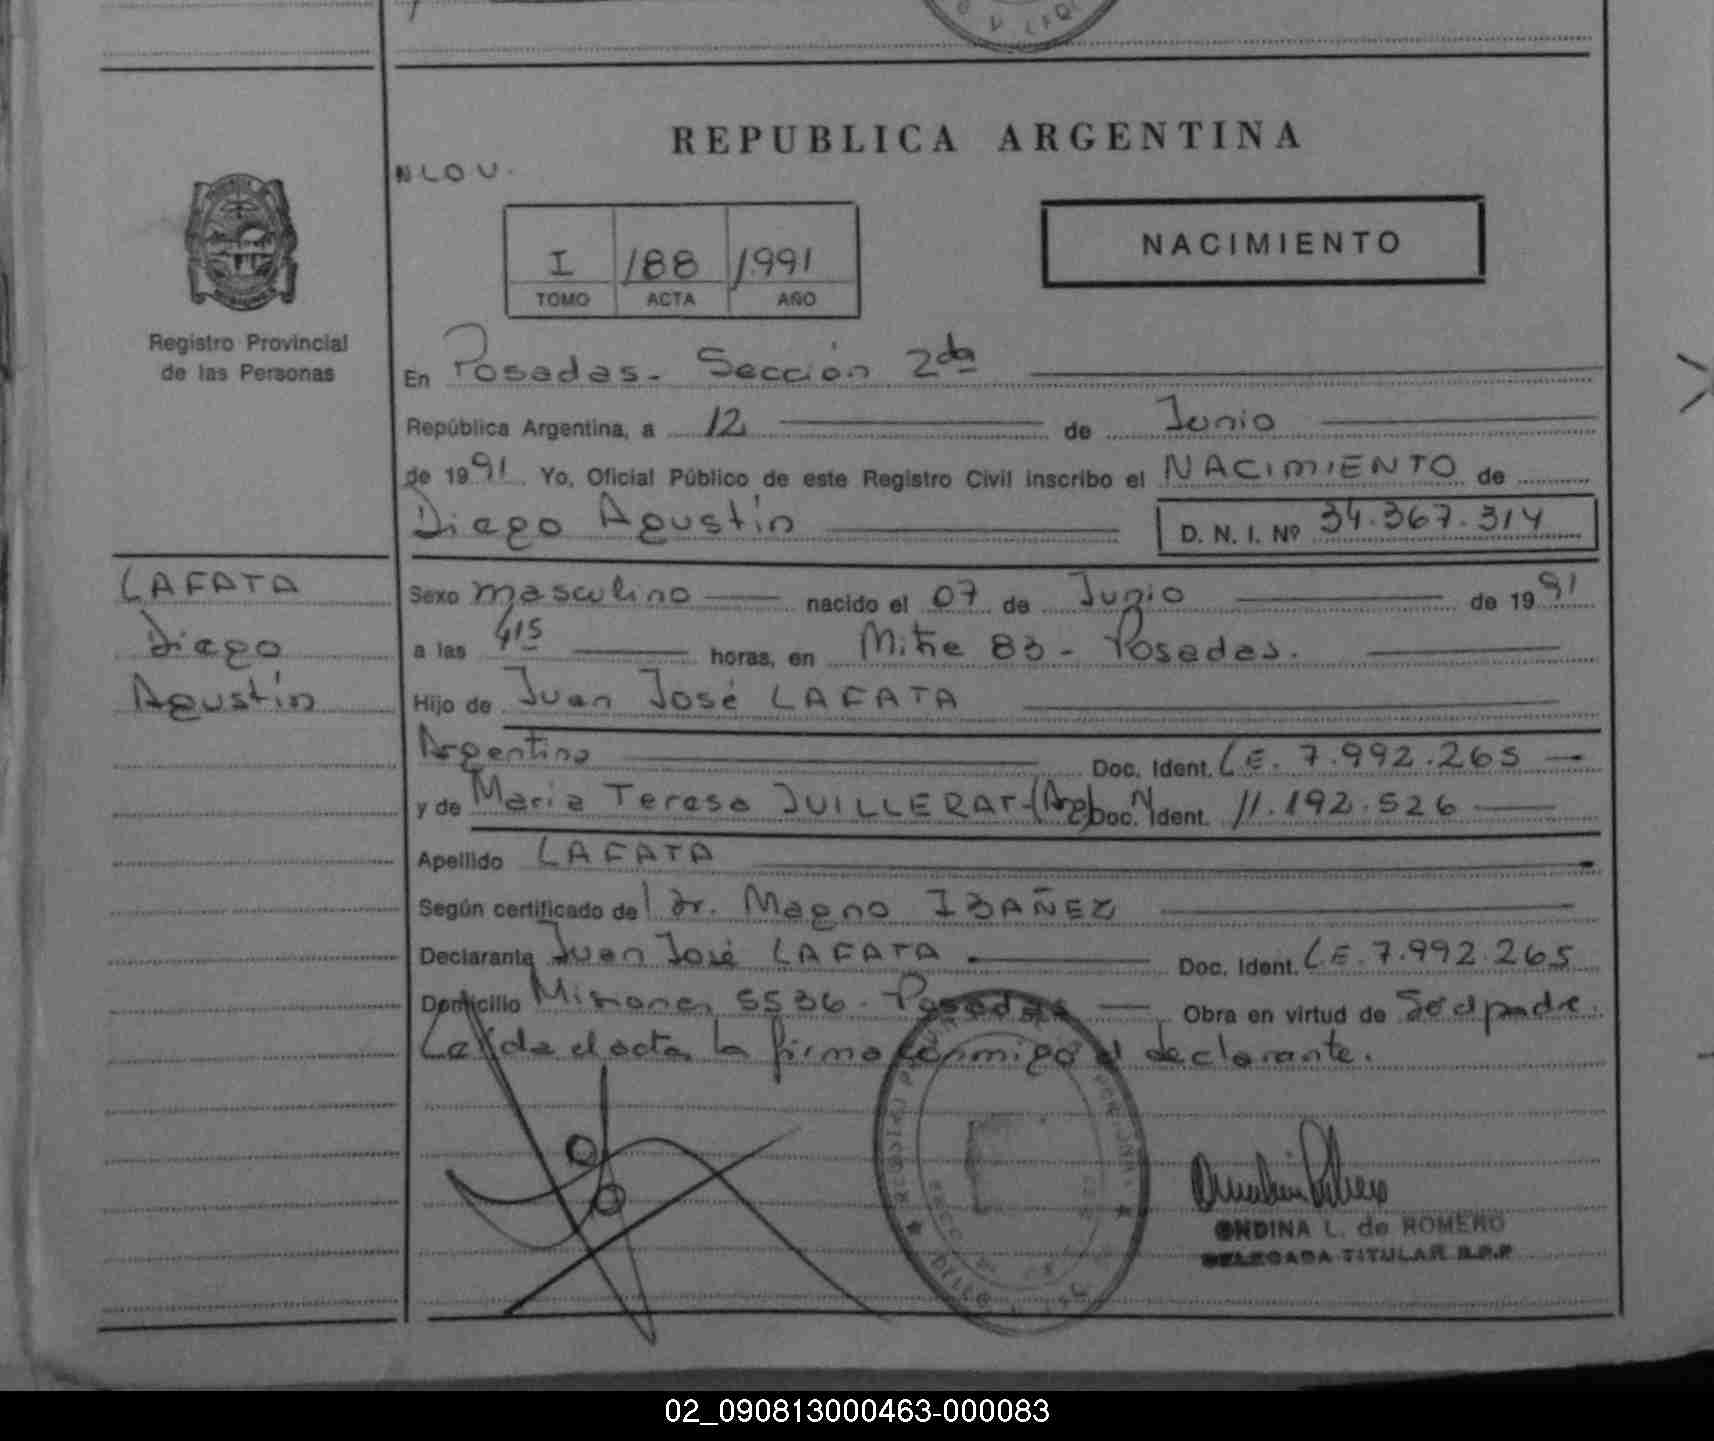 REPUBLICA ARGENTINA
NLOU.
NACIMIENTO
I 188 1991
TOMO ACTA AÑO
Registro Provincial
de las Personas
En Posadas. Sección 2da
República Argentina, a 12 de Junio
de 1991 Yo, Oficial Público de este Registro Civil inscribo el NACIMIENTO de
Diego Agustín D. N. I. Nº 34.367.314
LAFATA
Diego
Agustín
Sexo masculino nacido el 07 de Junio de 1991
a las 4 15 horas, en Mitre 83 - Posadas.
Hijo de Juan José LAFATA
Argentino Doc. Ident. LE. 7.992.265
y de Maria Teresa JUILLERAT-(Arg) Doc. Ident. 11.192.526
Apellido LAFATA
Según certificado del Dr. Magno IBAÑEZ
Declarante Juan José LAFATA Doc. Ident. LE. 7.992.265
Domicilio Misiones 5536 - Posadas Obra en virtud de Ser el padre.
Leída el acta la firma conmigo el declarante.
ONDINA L. de ROMERO
DELEGADA TITULAR R.P.P
02_090813000463-000083